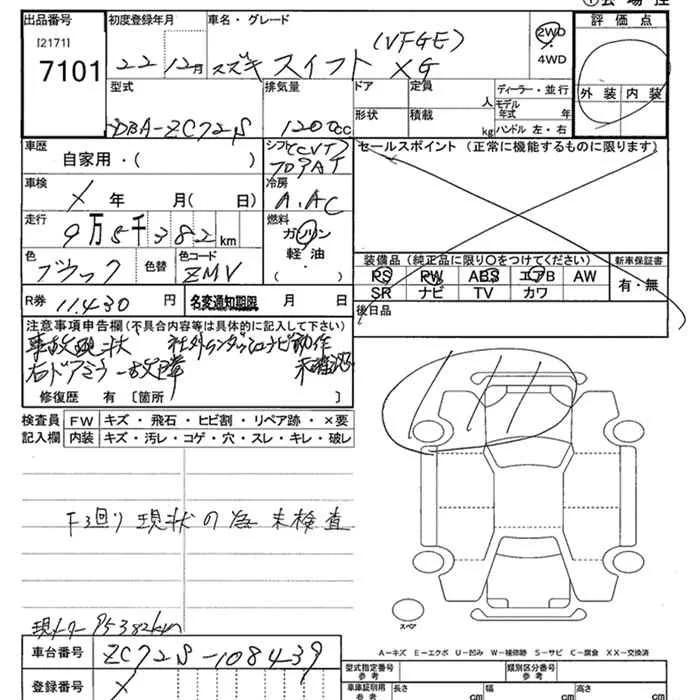 ①会場控
出品番号
[2171]
7101
初度登録年月
22 12月
車名・グレード
(VFGE)
スズキ スイフト XG
2WD
4WD
評価点
外装 内装
型式
DBA-ZC72S
排気量
1200cc
ドア
形状
定員 人
積載 kg
ディーラー・並行
モデル年式 年
ハンドル 左・右
車歴
自家用・( )
シフト(CVT)
フロアAT
セールスポイント (正常に機能するものに限ります)
車検
X 年 月( 日)
冷房
A.AC
走行
9万5千382km
燃料
ガソリン
軽油・
( )
色
ブラック
色替
色コード
ZMV
装備品 (純正品に限り○をつけてください)
PS PW ABS エアB AW
SR ナビ TV カワ
新車保証書
有・無
R券 11,430 円
名変通知期限 月 日
後日品
注意事項申告欄 (不具合内容等は具体的に記入して下さい)
事故現状 社外ワンダッシュナビ動作
右ドアミラー故障 未確認
修復歴 有 〔箇所 〕
検査員記入欄
FW キズ・飛石・ヒビ割・リペア跡・×要
内装 キズ・汚レ・コゲ・穴・スレ・キレ・破レ
下3回り現状の為未検査
現メーター 95382km
スペア
A-キズ E-エクボ U-凹み W-補修跡 S-サビ C-腐食 XX-交換済
車台番号
ZC72S-108439
登録番号
X
型式指定番号 参考
類別区分番号 参考
車庫証明用 参考
長さ cm
幅 cm
高さ cm